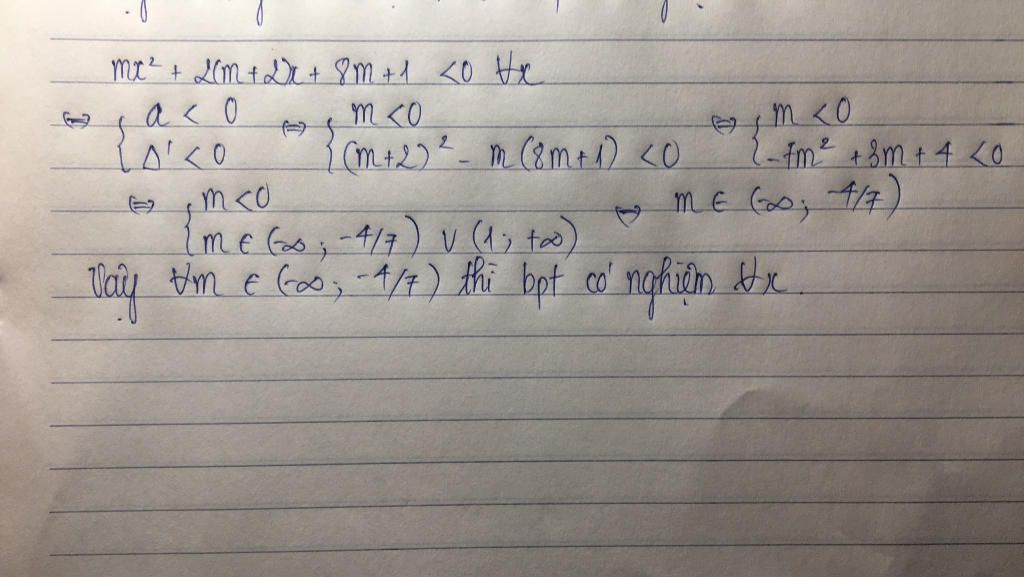 mx² + 2(m+2)x + 8m+1 <0 ∀x
⇔ { a < 0 ⇔ { m <0 ⇔ { m <0
Δ' < 0 (m+2)² - m(8m+1) <0 -7m² +3m+4 <0
⇔ { m<0 ⇔ m ∈ (-∞; -4/7)
m ∈ (-∞; -4/7) ∪ (1; +∞)
Vậy ∀m ∈ (-∞; -4/7) thì bpt có nghiệm ∀x.